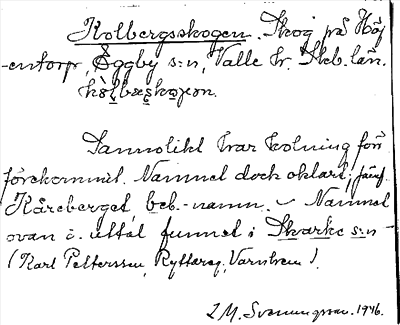 Kolbergsskogen. Skog på Höj
-entorp, Eggby s:n, Valle hr. Skb. län.
Sannolikt har kolning för
förekommit. Namnet dock oklart; jämf.
Kåreberget, beb.-namn. – Namnet
ovan o. uttal funnet i Skarke s:n
(Karl Pettersson, Ryttareg, Varnhem).
L M. Svenungsson. 1946.